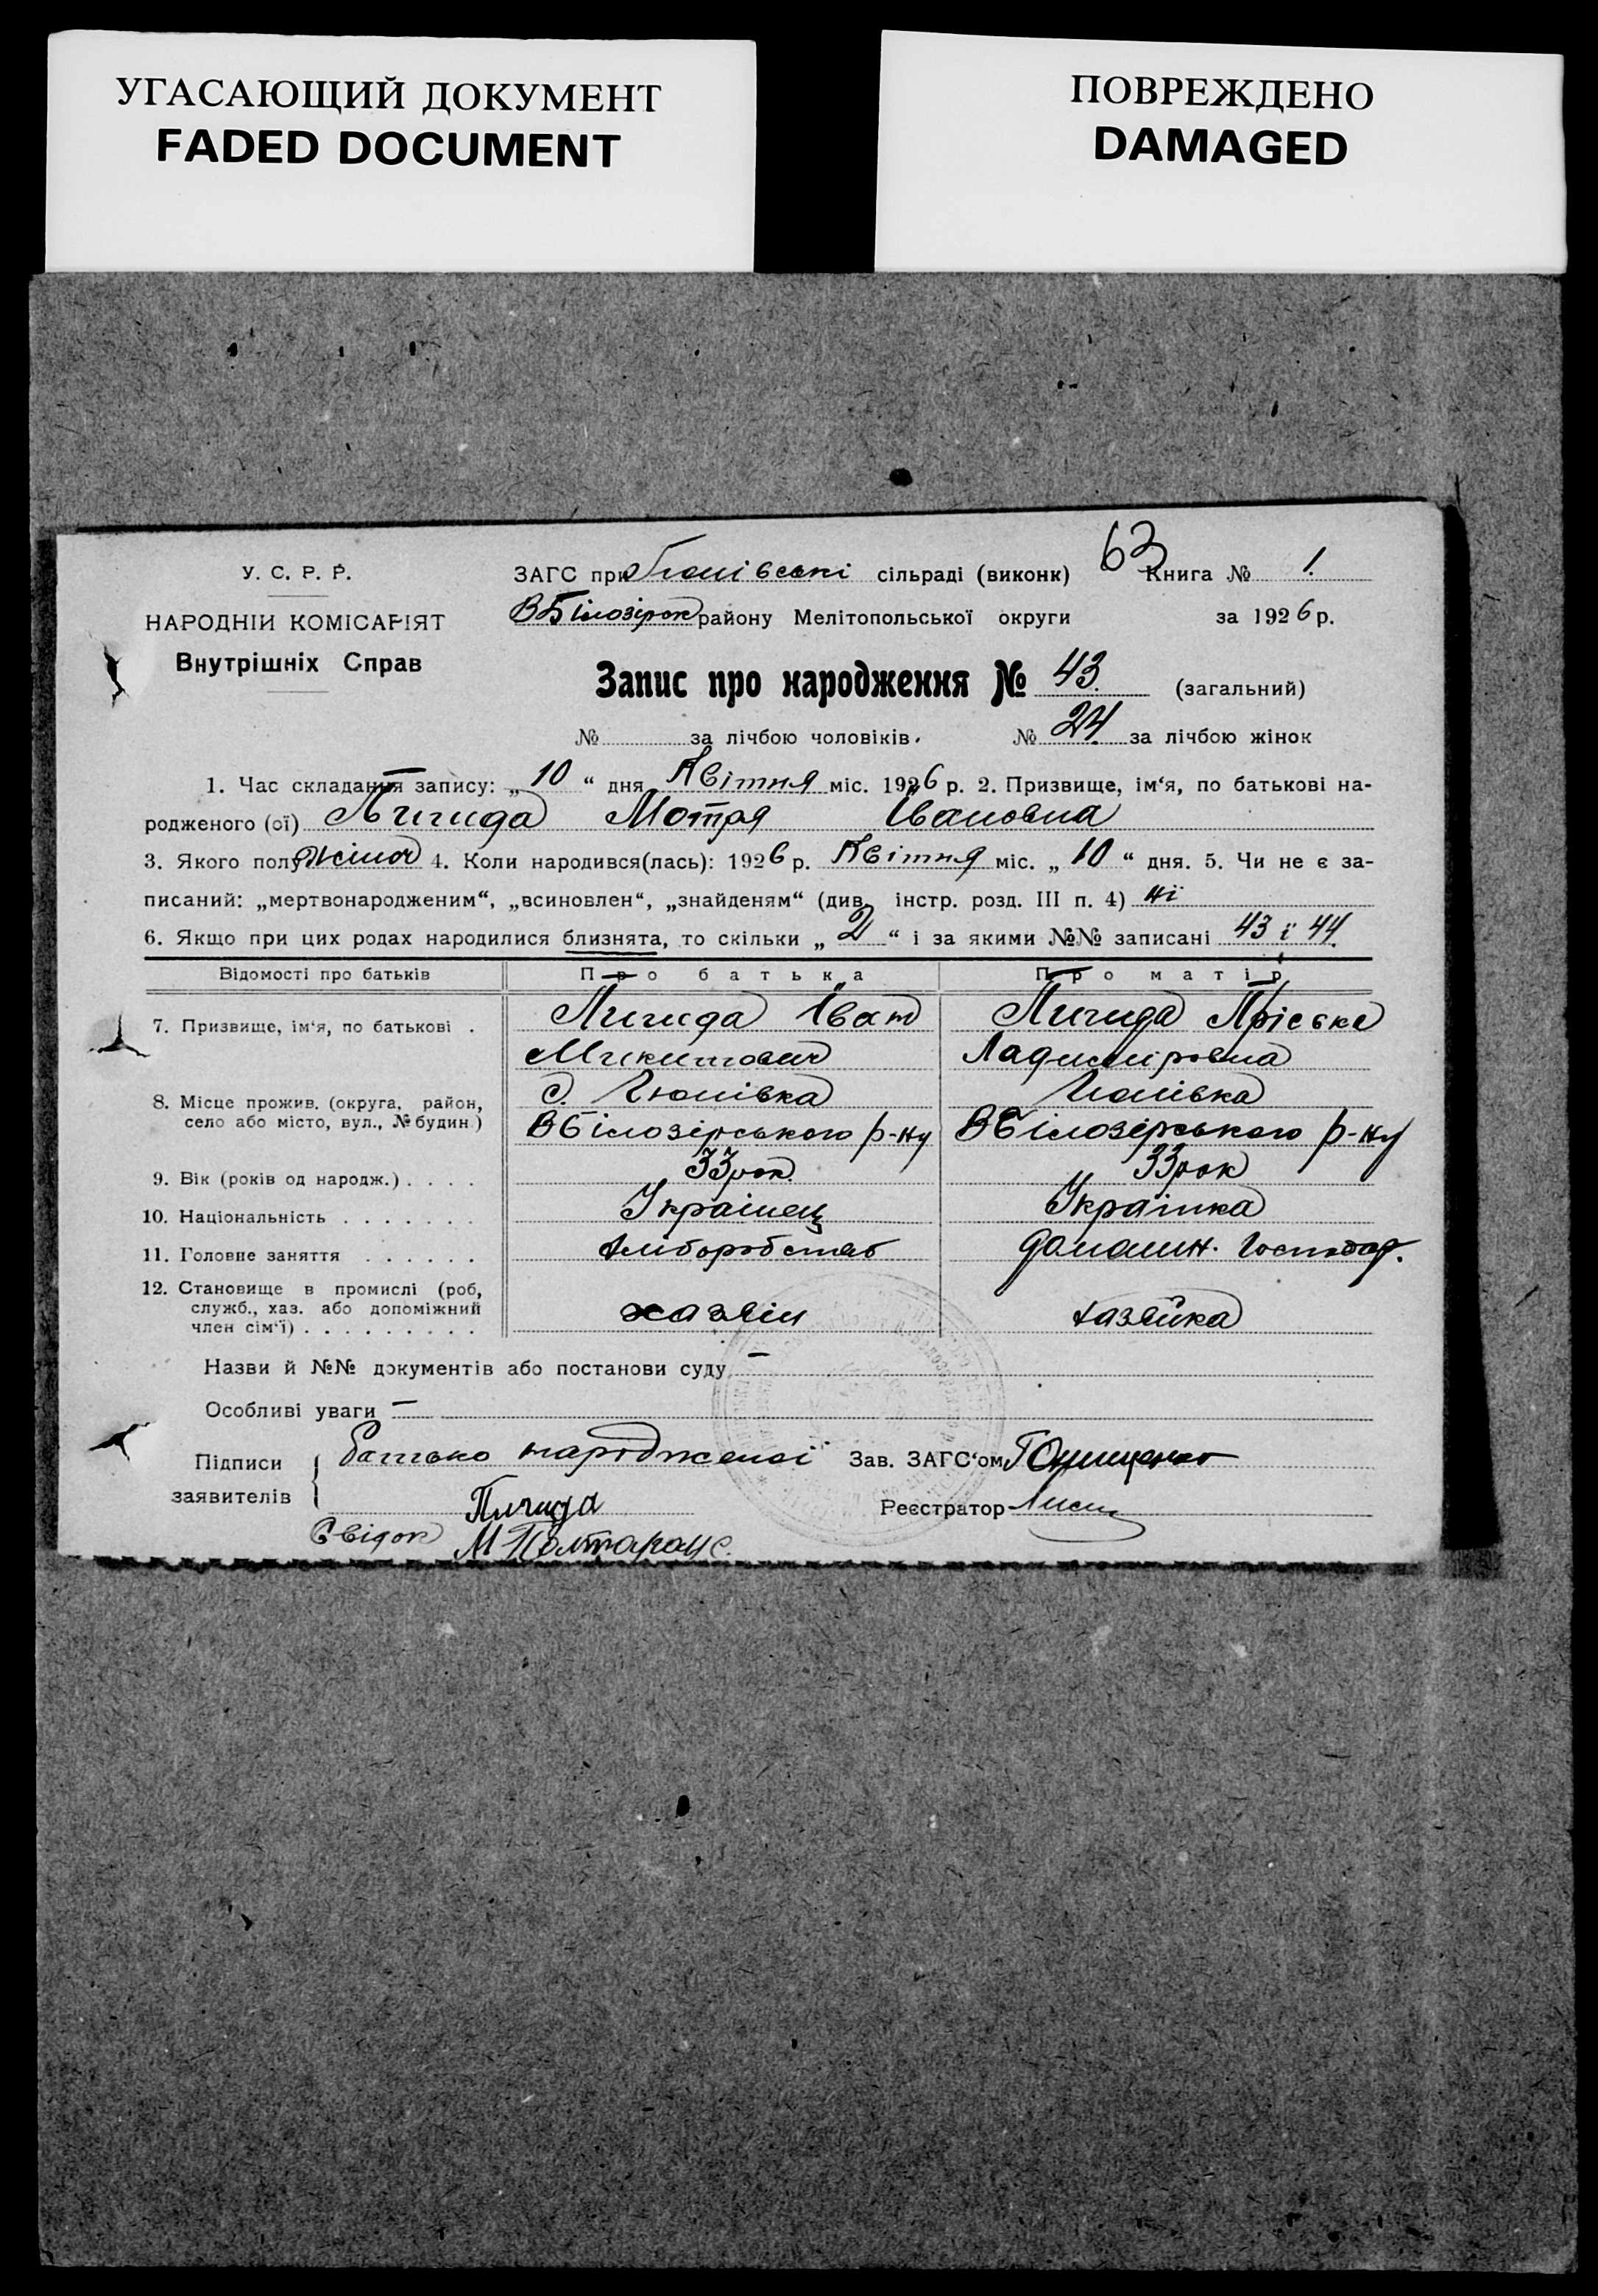 УГАСАЮЩИЙ ДОКУМЕНТ
FADED DOCUMENT
ПОВРЕЖДЕНО
DAMAGED
63
У. С. Р. Р.
ЗАГС при сільраді (виконк) Книга № 1.
НАРОДНІЙ КОМІСАРІЯТ
ВБілозірок району Мелітопольської округи за 1926 р.
Внутрішніх Справ
Запис про народження № 43. (загальний)
№ за лічбою чоловіків. № 24. за лічбою жінок
1. Час складання запису: „ 10 “ дня Квітня міс. 1926 р. 2. Призвище, ім‘я, по батькові на-
родженого (ої) Мотря Івановна
3. Якого полу жіноч 4. Коли народився(лась): 1926 р. Квітня міс. „ 10 “ дня. 5. Чи не є за-
писаний: „мертвонародженим“, „всиновлен“, „знайденям“ (див. інстр. розд. III п. 4) ні
6. Якщо при цих родах народилися близнята, то скільки „ 2 “ і за якими №№ записані 43 і 44.
Відомості про батьків Про батька Про матір
7. Призвище, ім‘я, по батькові . Іван Пріська
Микитович Ладимировна
8. Місце прожив. (округа, район, с. Гюнівка Гюнівка
село або місто, вул., № будин.) ВБілозірського р-ну ВБілозірського р-ну
9. Вік (років од народж.) . . . . 33 рок. 33 рок
10. Національність . . . . . . . Українец Українка
11. Головне заняття . . . . . . хліборобство домашн. господар.
12. Становище в промислі (роб, служб., хаз. або допоміжний член сім‘ї) . . . . . . . . . хазяін хазяйка
Назви й №№ документів або постанови суду —
Особливі уваги —
Підписи заявителів { Батько народженої Зав. ЗАГС‘ом
Реєстратор
Свідок